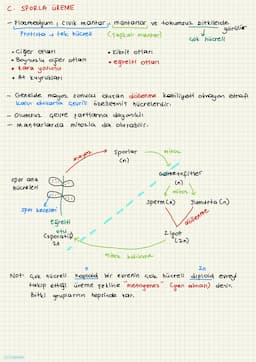 C. SPORLA ÜREME
- Plazmodyum, Cıvık mantar, mantarlar ve tohumsuz bitkilerde görülür
Protista → tek hücreli
(Şapkalı mantar)
çok hücreli
• Ciğer otları
• Kibrit otları
• Boynuzlu ciğer otları
• eğrelti otları
• kara yosunu
• At kuyrukları
- Genelde mayoz sonucu oluşan döllenme kabiliyeti olmayan etrafı
kalın dirençli çeperli özelleşmiş hücrelerdir.
- Olumsuz çevre şartlarına dayanıklı
- Mantarlarda mitozla da oluşabilir.
mayoz
Sporlar
(n)
mitoz
Gametofitler
(n)
mitoz
spor ana
hücreleri
Sperm(n)
Yumurta (n)
döllenme
Spor keseleri
Eğrelti
otu
(Sporofit)
2n
Zigot
(2n)
mitoz bölünme
Not: Çok hücreli haploid bir evrenin çok hücreli diploid evreyi
n
2n
takip ettiği üreme şekline "metagenez" (döl almaşı) denir.
Bitki gruplarının hepsinde var.